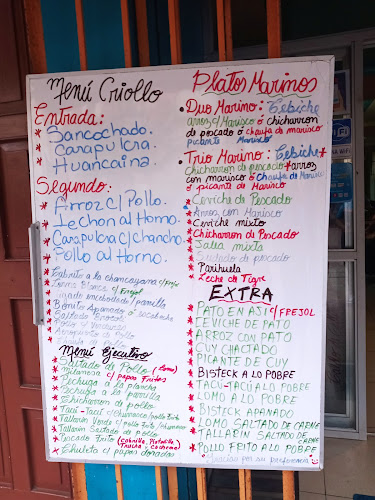 Menú Criollo
Entrada:
* Sancochado.
* Carapulcra.
* Huancaina.
Segundo:
* Arroz c/ Pollo.
* Lechon al Horno.
* Carapulcra c/chancho.
* Pollo al Horno.
* Cabrito a la chancayana c/
* Carne Blanca c/
* Bonito Apanado o escabeche
* Saltado
* Pollo c/ Verduras
Menú Ejecutivo
* Saltado de Pollo (Lomo)
* Milanesa c/ papas fritas
* Pechuga a la plancha
* Pechuga a la parrilla
* Chicharron de pollo
* Tacu-Tacu c/
* Tallarin Verde c/
* Tallarin Saltado de Pollo
* Pescado Frito
* Chuleta c/ papas doradas
Platos Marinos
• Duo Marino: Cebiche
arroz c/Marisco ó chicharron
de pescado ó chaufa de marisco
picante Marisco
• Trio Marino: Cebiche+
chicharron de pescado+arroz
con marisco ó chaufa de Marisco
ó picante de Marisco
* Ceviche de Pescado
* Arroz con Marisco
* Ceviche mixto
* Chicharron de Pescado
* Jalea mixta
* Sudado de pescado
* Parihuela
* Leche de Tigre
EXTRA
* PATO EN AJI c/FREJOL
* CEVICHE DE PATO
* ARROZ CON PATO
* CUY CHACTADO
* PICANTE DE CUY
* BISTECK A LO POBRE
* TACU-TACU A LO POBRE
* LOMO A LO POBRE
* BISTECK APANADO
* LOMO SALTADO DE CARNE
* TALLARIN SALTADO DE CARNE
* POLLO FRITO A LO POBRE
Gracias por su preferencia